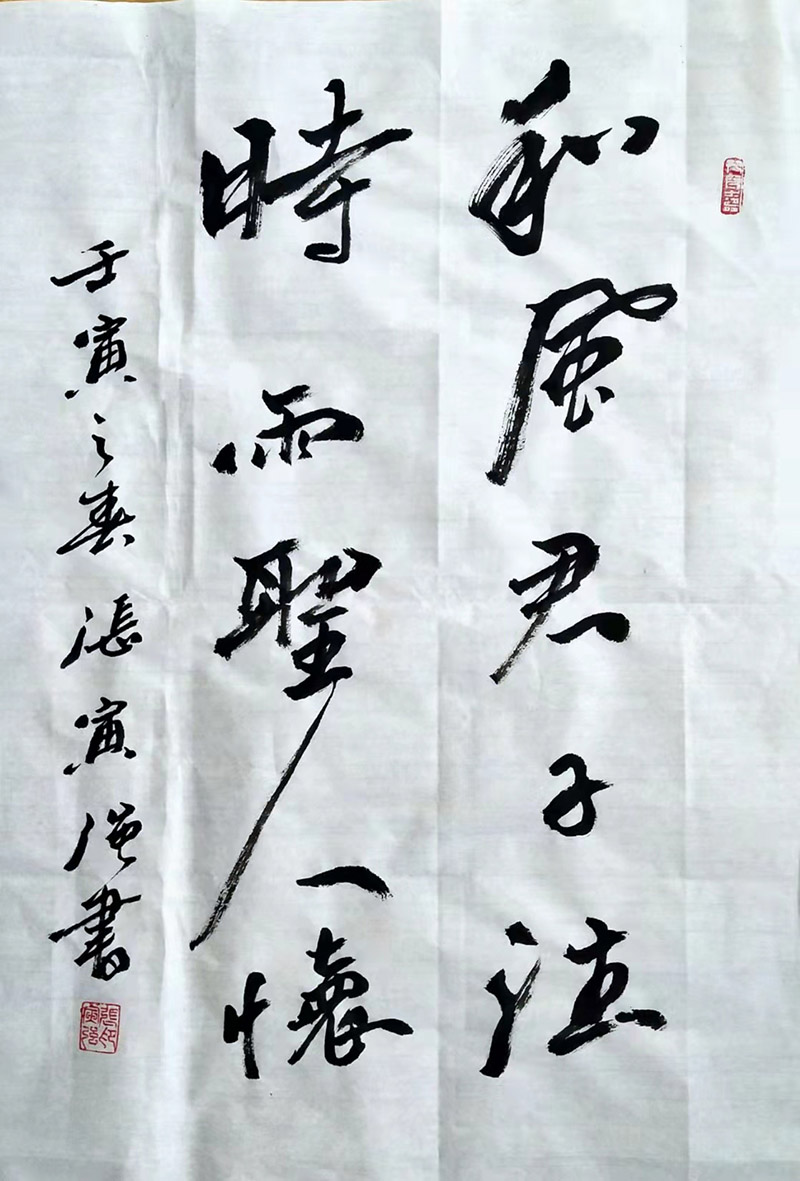 和風君子德
時雨聖人懷
壬寅之春張寅强書